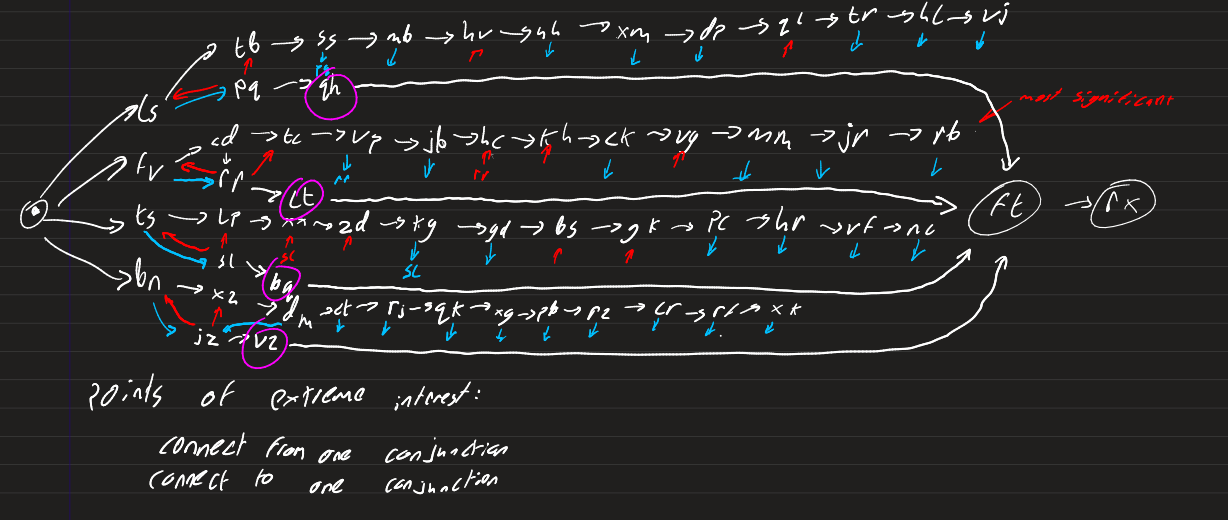 tb ss nb hv nh xm dp ql tr hl vj
rq
ls pq qh
most significant
cd tc vp jb hc kh ck vg mn jr rb
fv rr rr rr
lt ft rx
ts lp xx zd kg gd bs gk pc hr vf nc
sl sl sl
bn xz bq
dm ct rj qk xg pb rz cr rf xk
jz vz
Points of extreme interest:
connect from one conjunction
connect to one conjunction